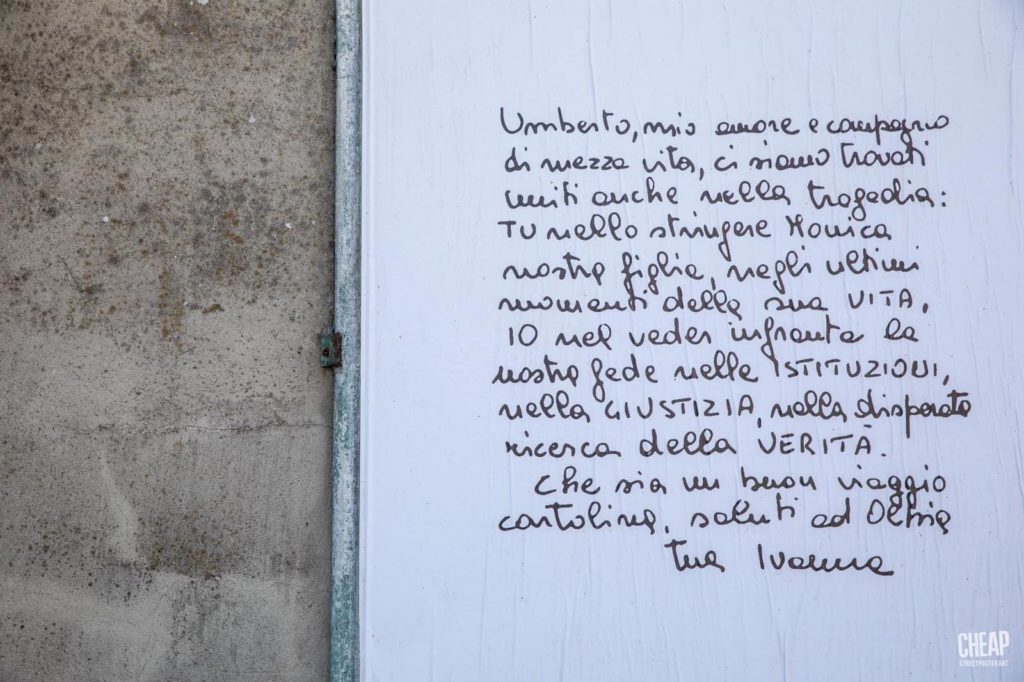 Umberto, mio amore e compagno
di mezza vita, ci siamo trovati
uniti anche nella tragedia:
TU nello stringere Monica
nostra figlia, negli ultimi
momenti della sua VITA,
IO nel veder infranta la
nostra fede nelle ISTITUZIONI,
nella GIUSTIZIA, nella disperata
ricerca della VERITÀ.
Che sia un buon viaggio
cartolina, saluti ad Oltria
tua Ivanna
CHEAP
STREET POSTER ART